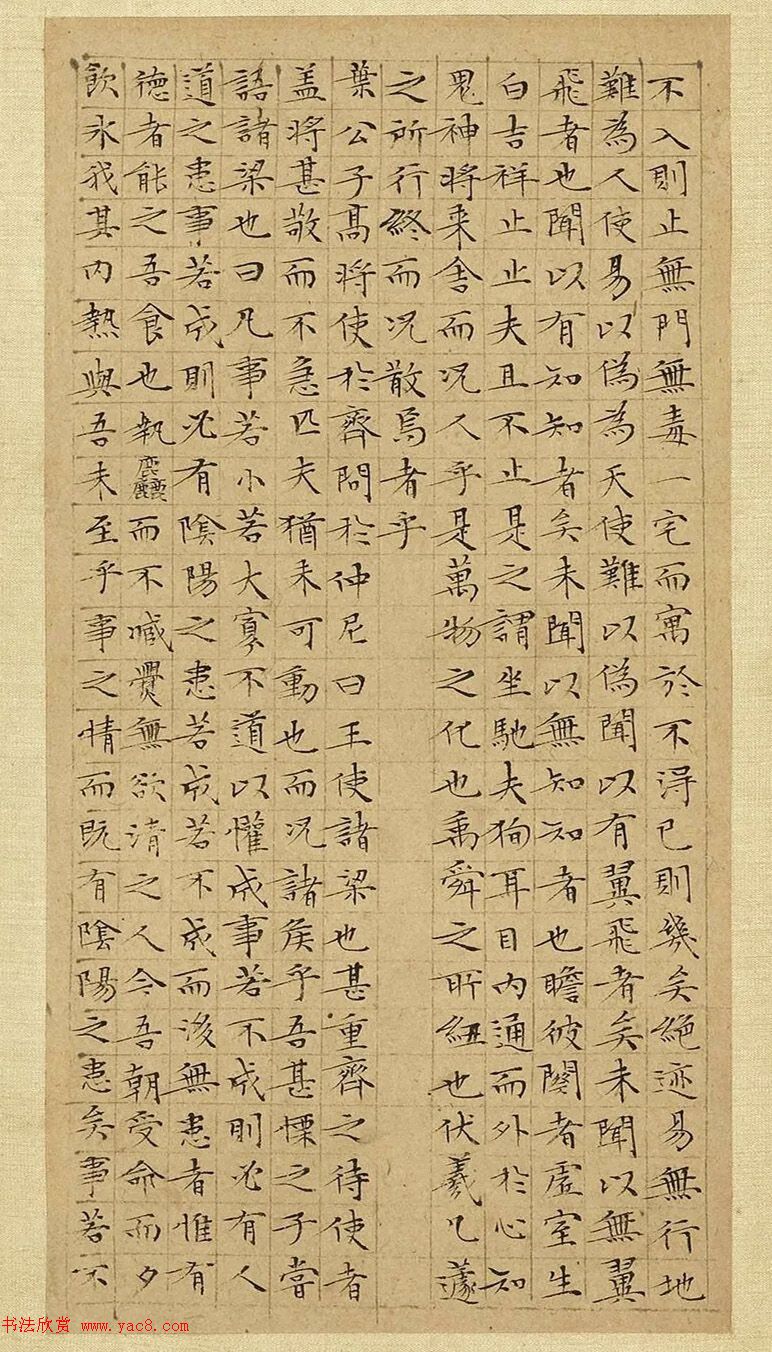 不入則止無門無毒一宅而寓於不淂已則幾矣絶迹易無行地
難為人使易以偽為天使難以偽聞以有翼飛者矣未聞以無翼
飛者也聞以有知知者矣未聞以無知知者也瞻彼闋者虛室生
白吉祥止止夫且不止是之謂坐馳夫狥耳目内通而外於心知
鬼神將来舍而况人乎是萬物之化也禹舜之所紐也伏羲几蘧
之所行終而况散焉者乎
葉公子髙將使於齊問於仲尼曰王使諸梁也甚重齊之待使者
盖將甚敬而不急匹夫猶未可動也而况諸侯乎吾甚慄之子嘗
語諸梁也曰凡事若小若大寡不道以懽成事若不成則必有人
道之患事若成則必有陰陽之患若成若不成而後無患者惟有
德者能之吾食也執麤而不臧爨無欲清之人今吾朝受命而夕
飲氷我其内熱與吾未至乎事之情而既有陰陽之患矣事若不
书法欣赏 www.yac8.com